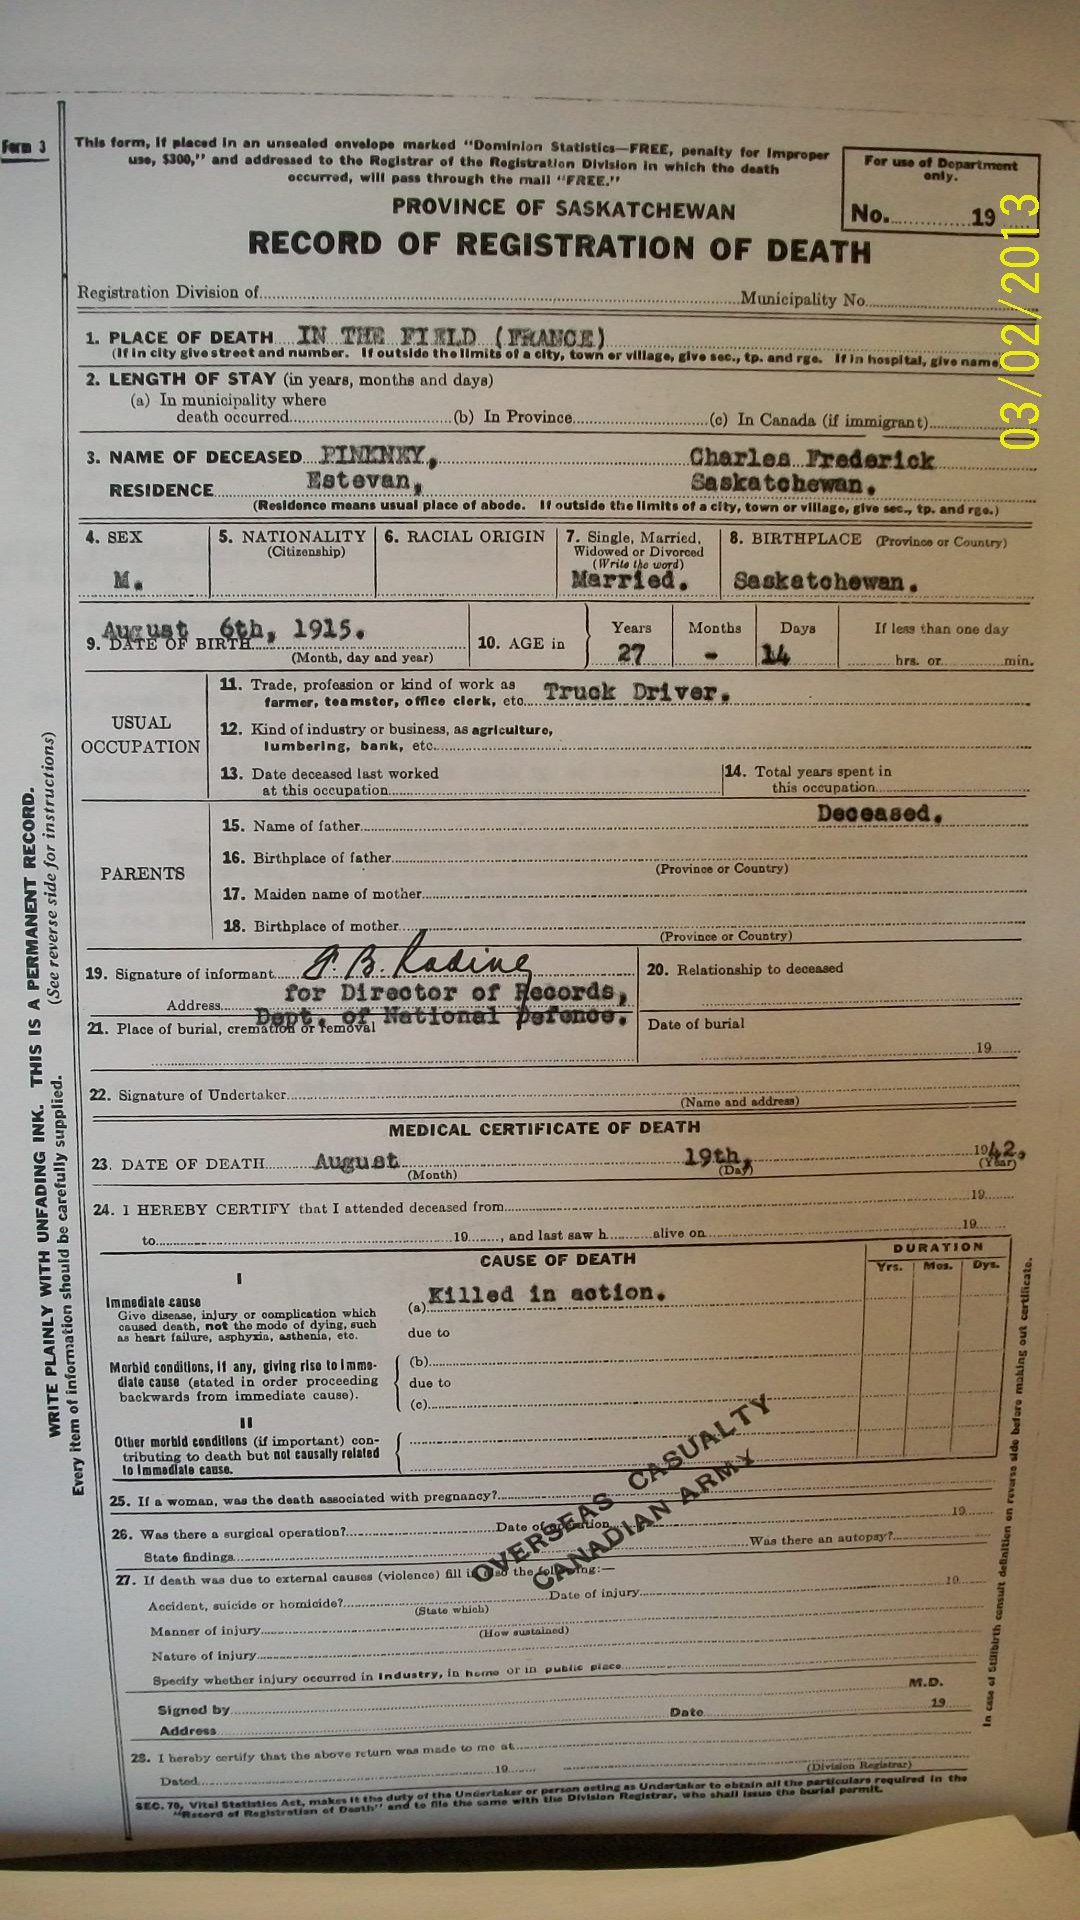 Form 3
This form, if placed in an unsealed envelope marked "Dominion Statistics—FREE, penalty for improper
use, $300," and addressed to the Registrar of the Registration Division in which the death
occurred, will pass through the mail "FREE."
For use of Department
only.
No. 19
PROVINCE OF SASKATCHEWAN
RECORD OF REGISTRATION OF DEATH
03/02/2013
Registration Division of Municipality No.
1. PLACE OF DEATH IN THE FIELD (FRANCE)
(If in city give street and number. If outside the limits of a city, town or village, give sec., tp. and rge. If in hospital, give name
2. LENGTH OF STAY (in years, months and days)
(a) In municipality where
death occurred (b) In Province (c) In Canada (if immigrant)
3. NAME OF DECEASED PINKNEY, Charles Frederick
RESIDENCE Estevan, Saskatchewan.
(Residence means usual place of abode. If outside the limits of a city, town or village, give sec., tp. and rge.)
4. SEX
M.
5. NATIONALITY
(Citizenship)
6. RACIAL ORIGIN
7. Single, Married,
Widowed or Divorced
(Write the word)
Married.
8. BIRTHPLACE (Province or Country)
Saskatchewan.
August 6th, 1915.
9. DATE OF BIRTH
(Month, day and year)
10. AGE in
Years Months Days If less than one day
27 - 14 hrs. or min.
USUAL
OCCUPATION
11. Trade, profession or kind of work as
farmer, teamster, office clerk, etc. Truck Driver.
12. Kind of industry or business, as agriculture,
lumbering, bank, etc.
13. Date deceased last worked
at this occupation
14. Total years spent in
this occupation
PARENTS
15. Name of father Deceased.
16. Birthplace of father
(Province or Country)
17. Maiden name of mother
18. Birthplace of mother
(Province or Country)
19. Signature of informant
for Director of Records,
Address
Dept. of National Defence.
20. Relationship to deceased
21. Place of burial, cremation or removal
Date of burial
19
22. Signature of Undertaker
(Name and address)
MEDICAL CERTIFICATE OF DEATH
23. DATE OF DEATH August 19th, 1942.
(Month) (Day) (Year)
24. I HEREBY CERTIFY that I attended deceased from 19
to 19 , and last saw h alive on 19
CAUSE OF DEATH
DURATION
Yrs. Mos. Dys.
I
Immediate cause
Give disease, injury or complication which
caused death, not the mode of dying, such
as heart failure, asphyxia, asthenia, etc.
(a) Killed in action.
due to
Morbid conditions, if any, giving rise to imme-
diate cause (stated in order proceeding
backwards from immediate cause).
(b)
due to
(c)
II
Other morbid conditions (if important) con-
tributing to death but not causally related
to immediate cause.
OVERSEAS CASUALTY
CANADIAN ARMY
25. If a woman, was the death associated with pregnancy?
26. Was there a surgical operation? Date of operation 19
State findings Was there an autopsy?
27. If death was due to external causes (violence) fill in also the following:—
Accident, suicide or homicide? Date of injury 19
(State which)
Manner of injury
(How sustained)
Nature of injury
Specify whether injury occurred in industry, in home or in public place
M.D.
Signed by Date 19
Address
28. I hereby certify that the above return was made to me at
Dated 19
(Division Registrar)
SEC. 70, Vital Statistics Act, makes it the duty of the Undertaker or person acting as Undertaker to obtain all the particulars required in the
"Record of Registration of Death" and to file the same with the Division Registrar, who shall issue the burial permit.
WRITE PLAINLY WITH UNFADING INK. THIS IS A PERMANENT RECORD.
Every item of information should be carefully supplied. (See reverse side for instructions)
In case of Stillbirth consult definition on reverse side before making out certificate.